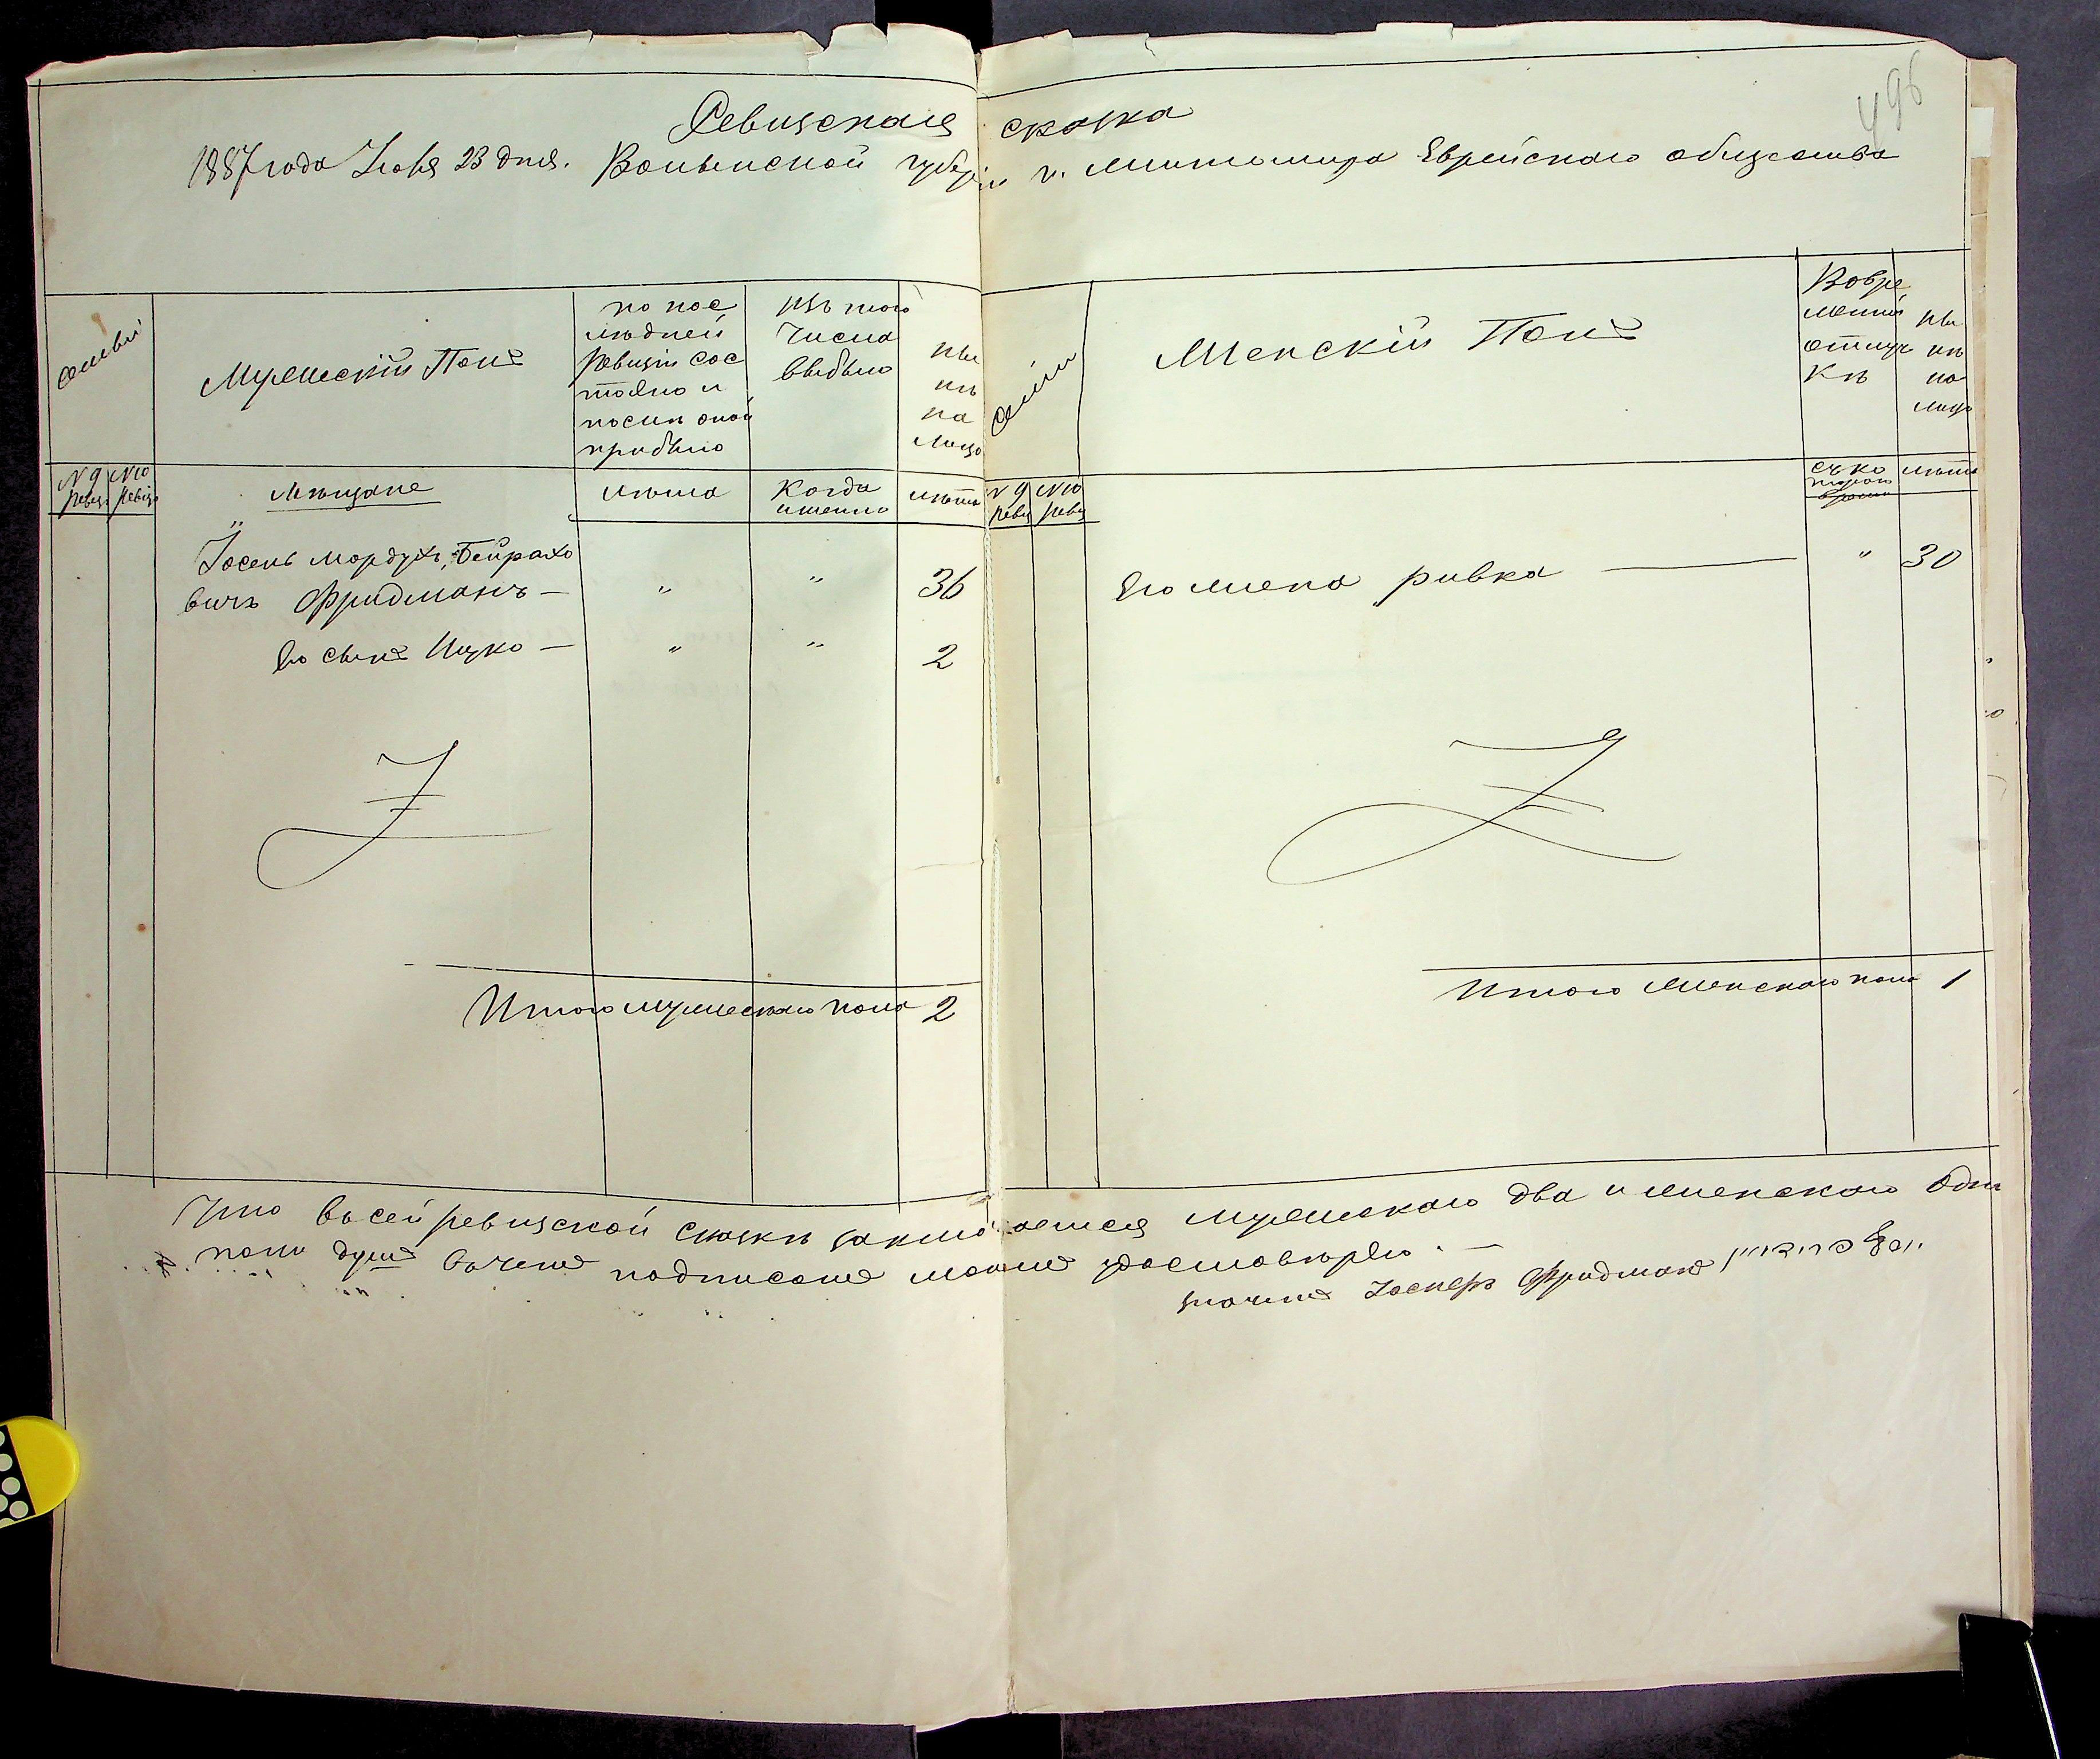 496
Ревизская сказка
1887 года Июня 23 дня. Волынской губерніи г. Житомира Еврейскаго общества
Семьи
Мужескій Полъ
по пос
лѣдней
Ревизіи сос
тояло и
послѣ оной
прибыло
Изъ того
Числа
выбыло
Ны
нѣ
на
лицо
Семьи
Женскій Полъ
Вовре
менной
отлуч
кѣ
Ны
нѣ
на
лицо
№ 9 Ревиз
№ 10 Ревиз
Мѣщане
Лѣта
Когда
именно
Лѣта
№ 9 Ревиз
№ 10 Ревиз
съ ко
тораго
времени
Лѣта
Іосель Мордухъ, Бейрахо
вичъ Фридманъ — " " 36
Его жена Ривка — " 30
Его сынъ Ицко — " " 2
Итого мужескаго пола 2
Итого Женскаго пола 1
Что въ сей ревизской сказкѣ заключается мужескаго два и женскаго одна
пола душъ вочемъ подписомъ моимъ удостовѣряю. —
Іосифъ Фридманъ